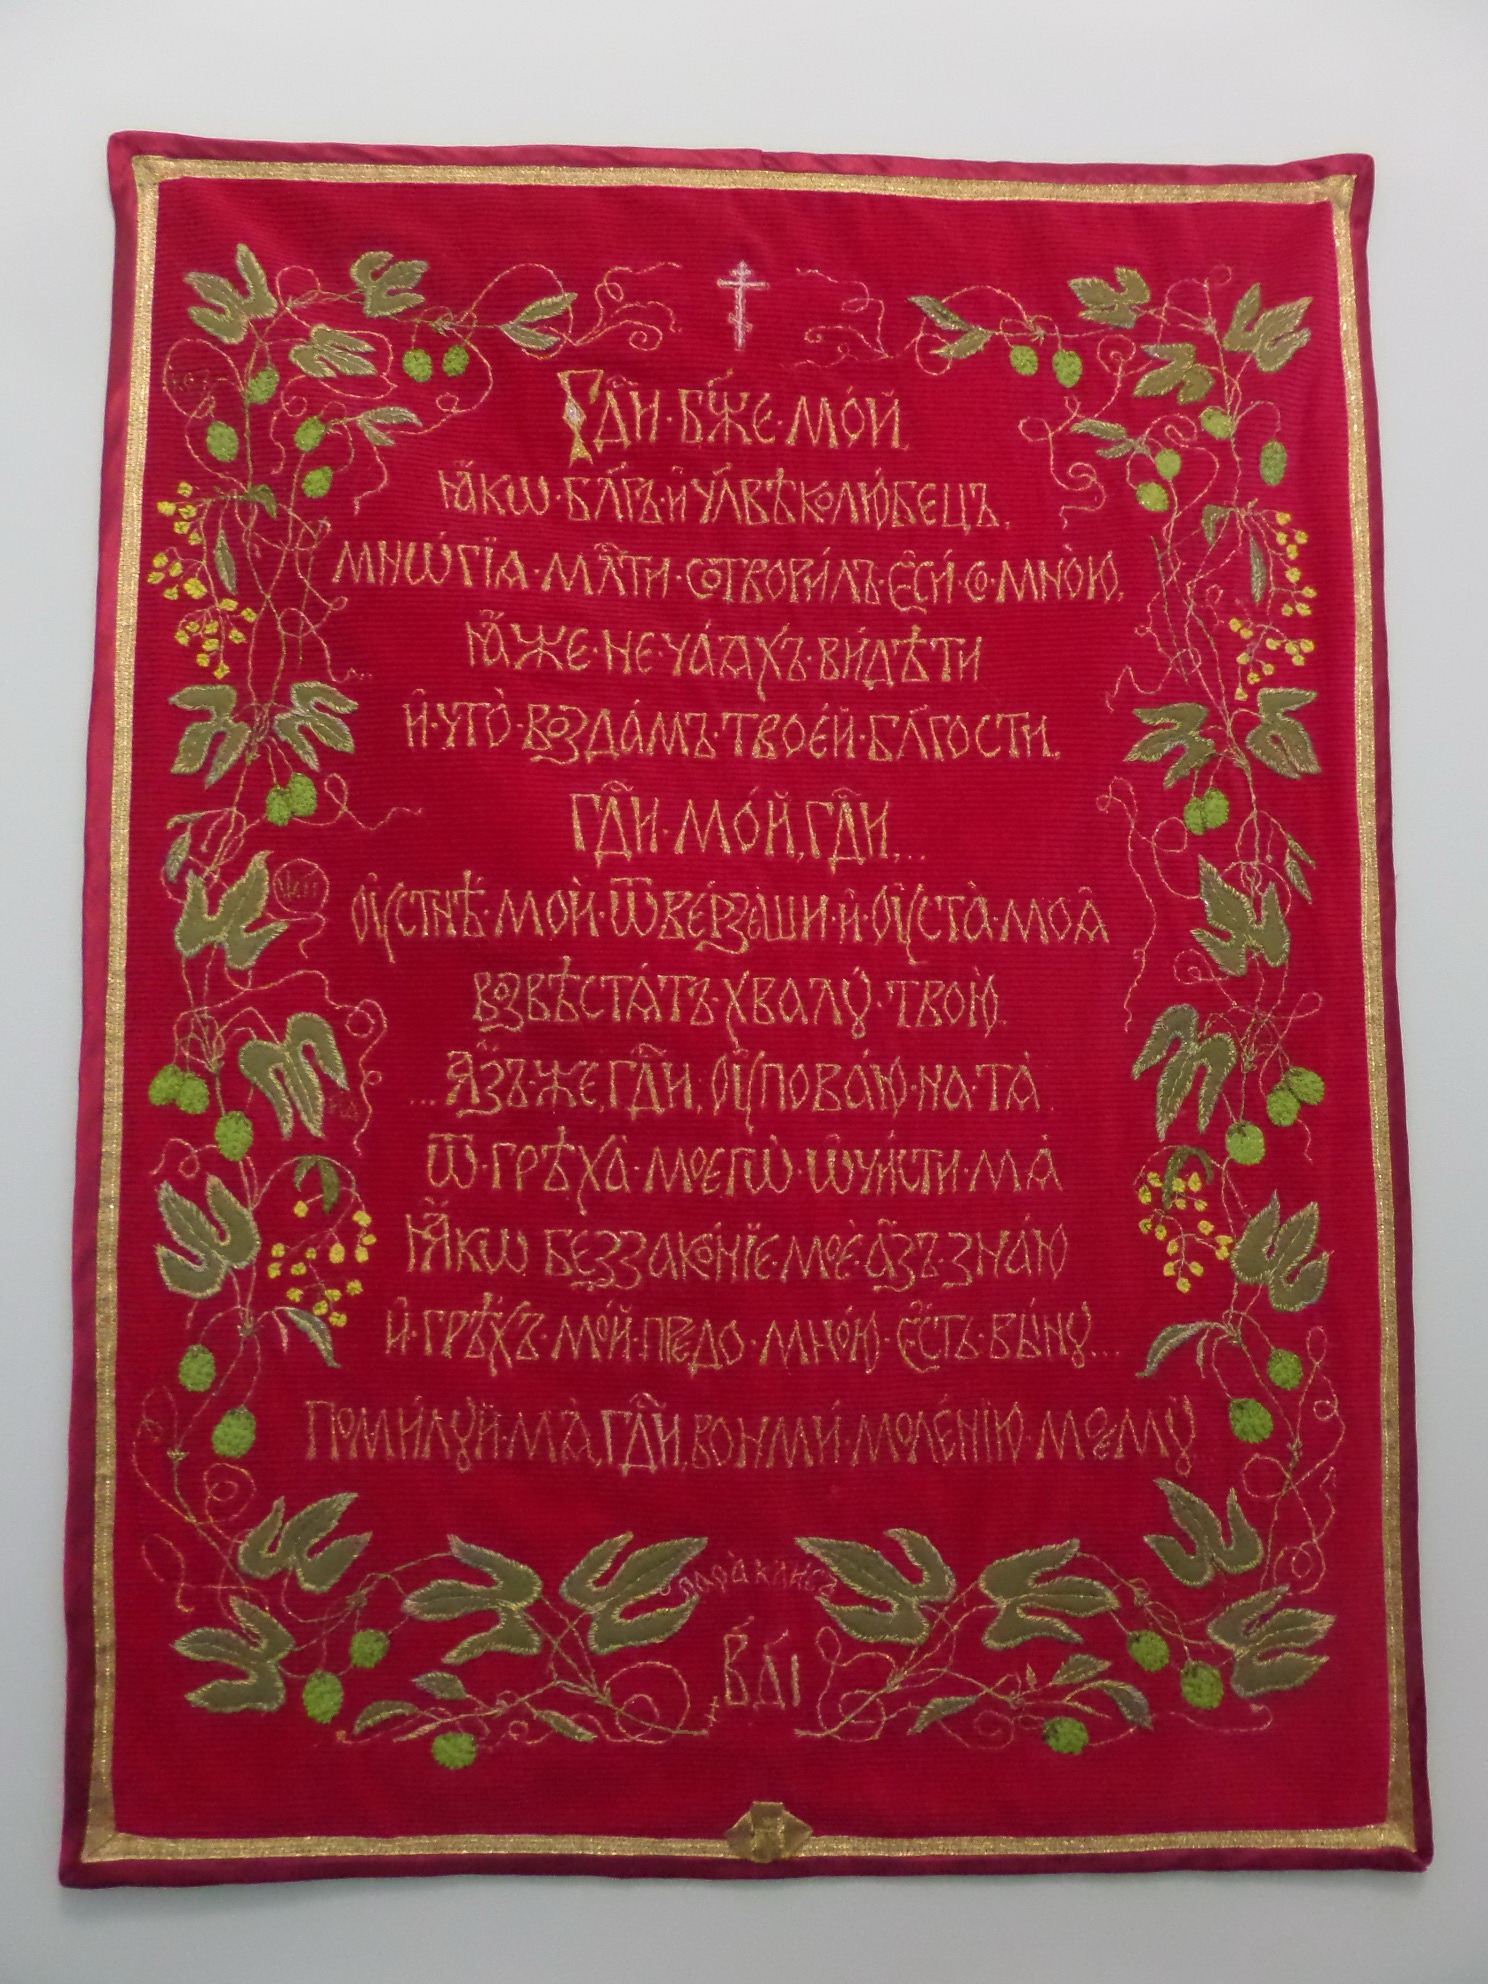 Гдⷭ҇и · Бж҃е · мо́й
ꙗ҆́кѡ · бл҃гъ · и҆ · чл҃вѣколю́бецъ,
мнѡ́гїѧ · млⷭ҇ти · сотвори́лъ · є҆сѝ · со · мно́ю,
ꙗ҆̀же · не · ча́ѧхъ · ви́дѣти
и҆ · что̀ · возда́мъ · твое́й · бл҃гости,
гдⷭ҇и · мо́й, гдⷭ҇и,...
ᲂу҆стнѣ̀ · моѝ · ѿве́рзеши · и҆ · ᲂу҆ста̀ · моѧ̑
возвѣстѧ́тъ · хвалꙋ̀ · твою̀.
...а҆́зъ · же, гдⷭ҇и, ᲂу҆пова́ю · на · тѧ̀
ѿ · грѣха̀ · моегѡ̀ · ѡ҆чи́сти · мѧ̀
ꙗ҆́кѡ беззако́нїе · моѐ · а҆́зъ · зна́ю
и҆ · грѣ́хъ · мо́й · предо · мно́ю · є҆́сть · вы́нꙋ...
Поми́лꙋй · мѧ̀, гдⷭ҇и, вонмѝ · моле́нїю · моемꙋ̀...
҂в҃ді